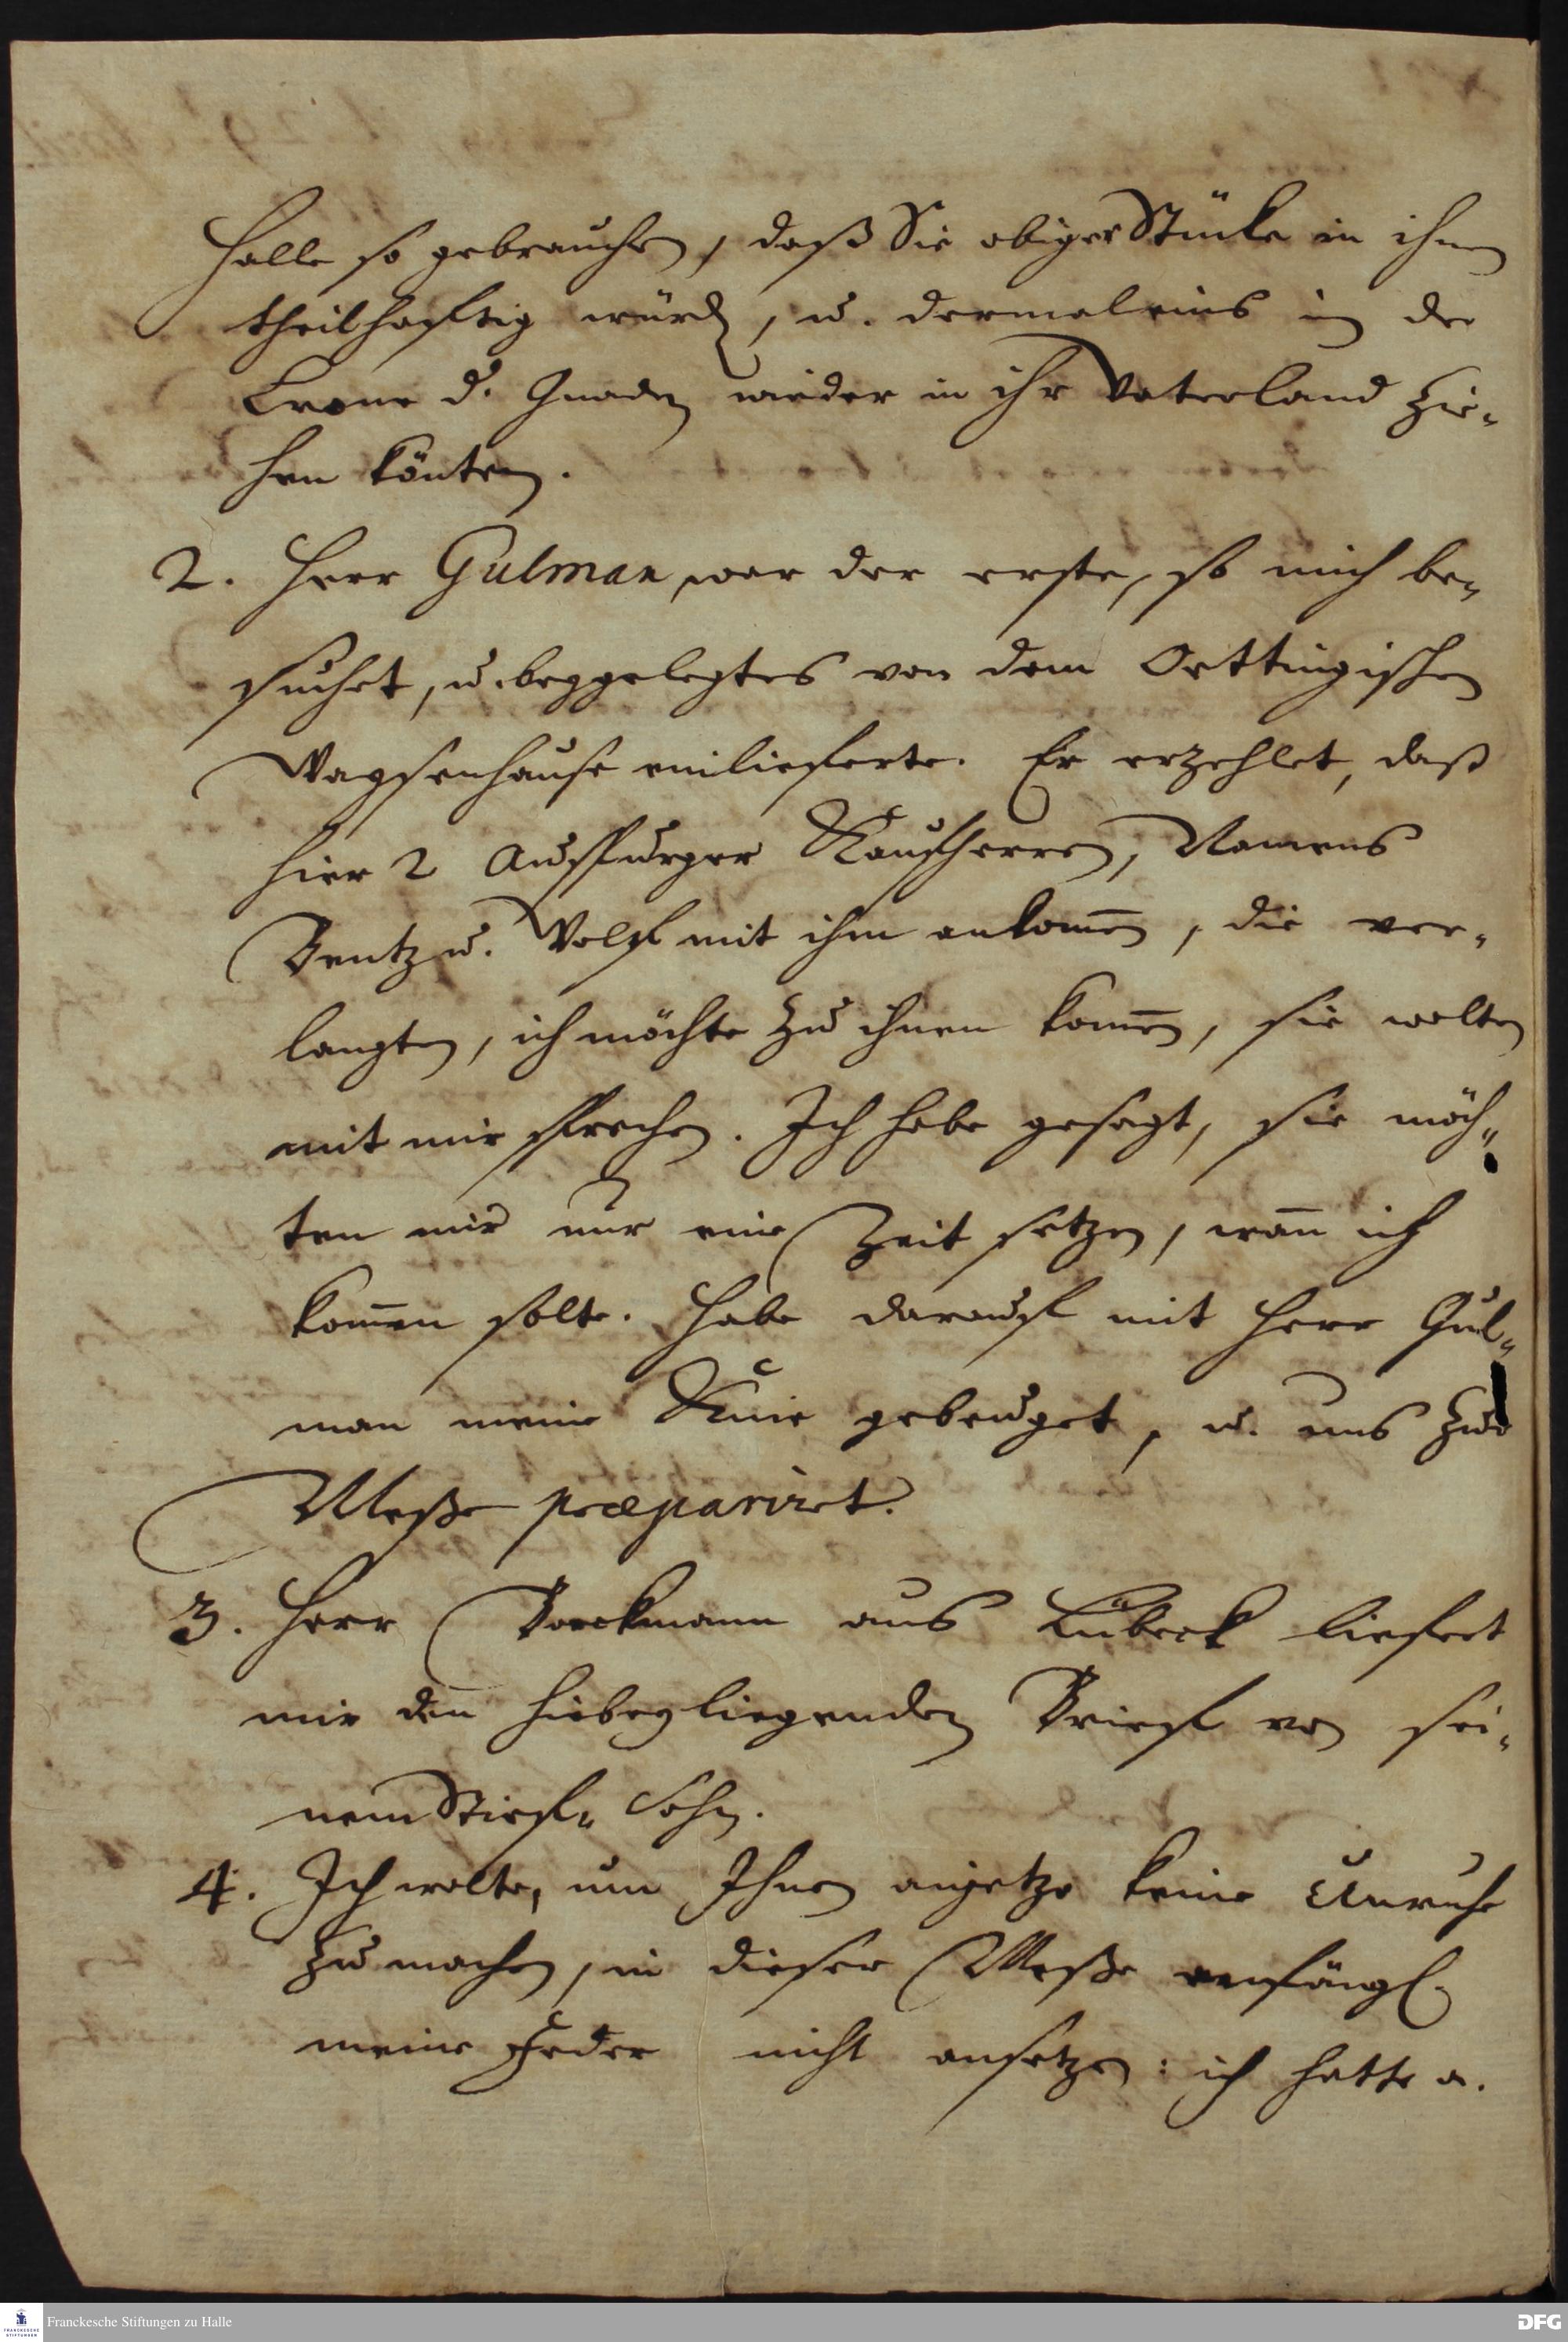 Halle so gebrauchen, daß Sie obiger Stücke in ihnen
theilhafftig würden, u. dermaleins in der
Crone d. Gnaden wieder in ihr Vaterland zie-
hen könten.
2. Herr Gulman war der erste, so mich be-
suchet, u. beygelegtes von dem Oettingischen
Waysenhause einlieferte. Er erzehlet, daß
hier 2 Augspurger Kauffherren, Namens
Bentz u. Wolff mit ihm ankomen, die ver-
langten, ich möchte zu ihnen komen, sie wolten
mit mir sprechen. Ich habe gesagt, sie möch-
ten mir nur eine Zeit setzen, wan ich
komen solte. Habe darauff mit Herr Gul-
man meine Knie gebeuget, u. uns zur
Meße præpariret.
3. Herr Borckmann aus Lübeck liefert
mir den hiebey liegenden Brieff von sei-
nem Stieff- Sohn.
4. Ich wolte, um Ihnen anjetzo keine Unruhe
zu machen, in dieser Meße anfängl.
meine Feder nicht ansetzen: ich hatte a.
Franckesche Stiftungen zu Halle
DFG